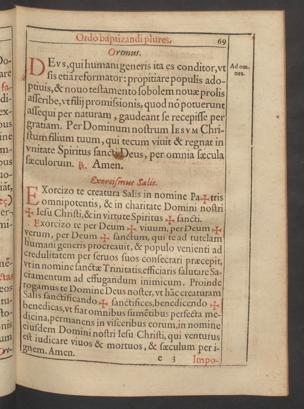 Ordo baptizandi plures. 69
Oremus.
DEVS, qui humani generis ita es conditor, vt
sis etiã reformator: propitiare populis ado-
ptiuis, & nouo testamento sobolem nouæ prolis
asscribe, vt filij promissionis, quod nõ potuerunt
assequi per naturam, gaudeant se recepisse per
gratiam. Per Dominum nostrum IESVM Chri-
stum filium tuum, qui tecum viuit & regnat in
vnitate Spiritus sancti Deus, per omnia sæcula
sæculorum. ℟. Amen.
Ad om-
nes.
Exorcismus Salis.
EXorcizo te creatura Salis in nomine Pa✠tris
omnipotentis, & in charitate Domini nostri
✠ Iesu Christi, & in virtute Spiritus ✠ sancti.
Exorcizo te per Deum ✠ viuum, per Deum ✠
verum, per Deum ✠ sanctum, qui te ad tutelam
humani generis procreauit, & populo venienti ad
credulitatem per seruos suos consecrari præcepit,
vt in nomine sanctæ Trinitatis, efficiaris salutare Sa-
cramentum ad effugandum inimicum. Proinde
rogamus te Domine Deus noster, vt hãc creaturam
Salis sanctificando ✠ sanctifices, benedicendo ✠
benedicas, vt fiat omnibus sumẽtibus perfecta me-
dicina, permanens in visceribus eorum, in nomine
eiusdem Domini nostri Iesu Christi, qui venturus
est iudicare viuos & mortuos, & sæculum per i-
gnem. Amen.
e 3 Impo-